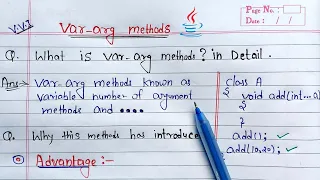 V.V.I
Var-arg methods
Java
Page No.
Date : / /
Q. What is var-arg methods? in Detail.
Ans→ Var-arg methods known as
variable number of argument
methods and ••••
class A
{ void add(int...a)
{
}
add(); ✓
add(10,20); ✓
Q. Why this methods has introduce
Advantage :-